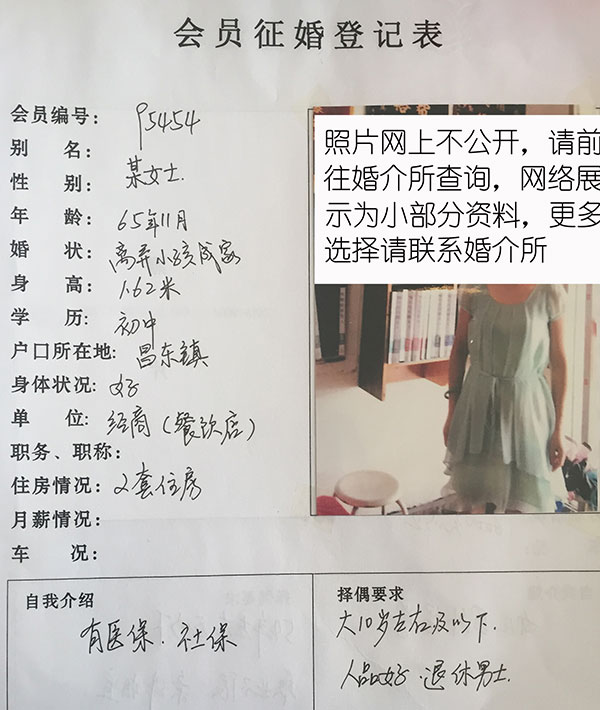 会员征婚登记表
会员编号: 95454
别 名: 某女士.
性 别:
年 龄: 65年11月
婚 状: 离异小孩成家
身 高: 1.62米
学 历: 初中
户口所在地: 昌东镇
身体状况: 好
单 位: 经商(餐饮店)
职务、职称:
住房情况: 2套住房
月薪情况:
车 况:
照片网上不公开,请前
往婚介所查询,网络展
示为小部分资料,更多
选择请联系婚介所
自我介绍
有医保. 社保
择偶要求
大10岁左右及以下.
人品好.退休男士.